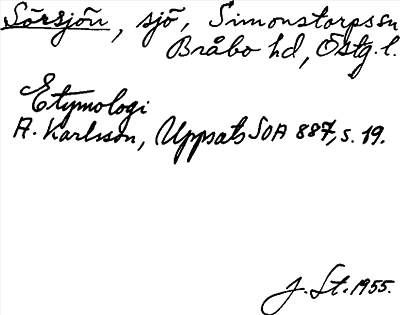 Sörsjön, sjö, Simonstorps sn
Bråbo hd, Östg. l.
Etymologi
A. Karlsson, Uppsats SOA 887, s. 19.
J. St. 1955.